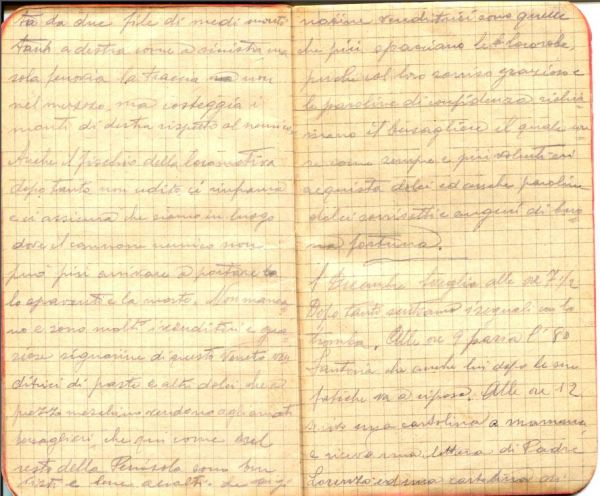 tra da due file di medi monti
tanto a destra come a sinistra una
sola ferrovia la traccia non
nel mezzo, ma costeggia i
monti di destra rispetto al nemico.
Anche il fischio della locomotiva
dopo tanto non udito ci rinfranca
e ci assicura che siamo in luogo
dove il cannone nemico non
può più arrivare a portare
lo spavento e la morte. Non manca
no e sono molti i venditori e gra
ziose signorine di questo Veneto ven
ditrici di paste e altri dolci che a
prezzo meschino vendono agli
bersaglieri, che qui come nel
resto della Penisola sono ben
visti e bene accolti. Le
venditrici sono quelle
che più spacciano le
perche col loro sorriso grazioso e
le paroline di confidenza richia
mano il bersagliere il quale
come sempre e più volentieri
acquista dolci ed anche paroline
dolci sorrisetti e auguri di buo
na fortuna.
1 Dicembre Sveglia alle ore 7 1/2
Dopo tanto sentiamo i segnali con la
tromba. Alle ore 9 passa l' 80
Fanteria che anche lui dopo le sue
fatiche va a riposo. Alle ore 12
scrivo una cartolina a mamma
e ricevo una lettera di Padre
Lorenzo ed una cartolina di